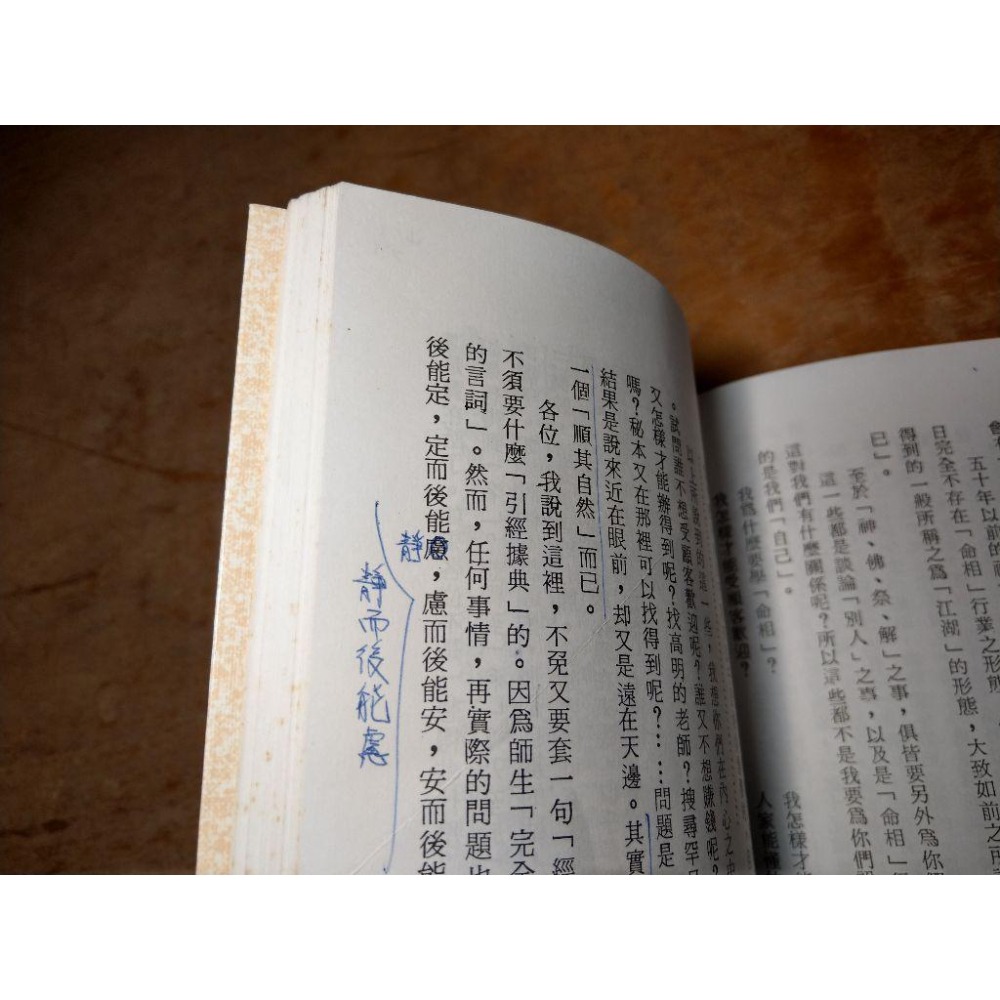 五十年以前的
日完全不存在「命相」行業之形態,大致如前之所
得到的一般所稱之爲「江湖」的形態,
已」。
至於「神、佛、祭、解」之事,俱皆要另外爲你
這一些都是談論「別人」之事,以及是「命相」
這對我們有什麼關係呢?所以這些都不是我要爲你們
的是我們「自己」。
我爲什麼要學「命相」?
我怎樣才
我怎樣才能受顧客歡迎?
人家能
以上所說到的這一些,我想你們在內心之中
。試問誰不想受顧客歡迎呢?誰又不想賺錢呢?
又怎樣才能辦得到呢?找高明的老師?搜尋罕
嗎?秘本又在那裡可以找得到呢?……問題是
結果是說來近在眼前,却又是遠在天邊。其實
一個「順其自然」而已。
各位,我說到這裡,不免又要套一句「經
不須要什麼「引經據典」的。因爲師生「完全
的言詞」。然而,任何事情,再實際的問題也
後能定,定而後能慮,慮而後能安,安而後能
靜
靜而後能慮